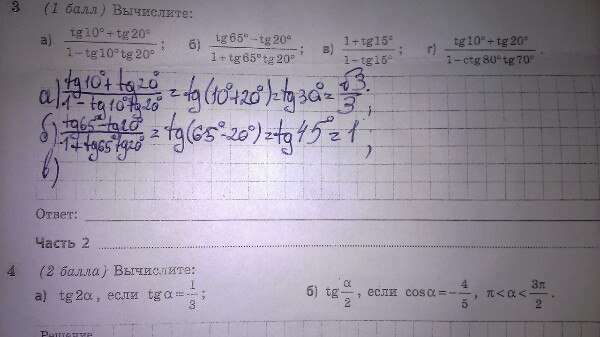 3 (1 балл) Вычислите:
а) (tg10°+tg20°)/(1−tg10°tg20°); б) (tg65°−tg20°)/(1+tg65°tg20°); в) (1+tg15°)/(1−tg15°); г) (tg10°+tg20°)/(1−ctg80°tg70°).
а) (tg10°+tg20°)/(1−tg10°tg20°) = tg(10°+20°) = tg30° = √3/3;
б) (tg65°−tg20°)/(1+tg65°tg20°) = tg(65°−20°) = tg45° = 1;
в)
Ответ:
Часть 2
4 (2 балла) Вычислите:
а) tg2α, если tgα=1/3; б) tg α/2, если cosα=−4/5, π<α<3π/2.
Решение